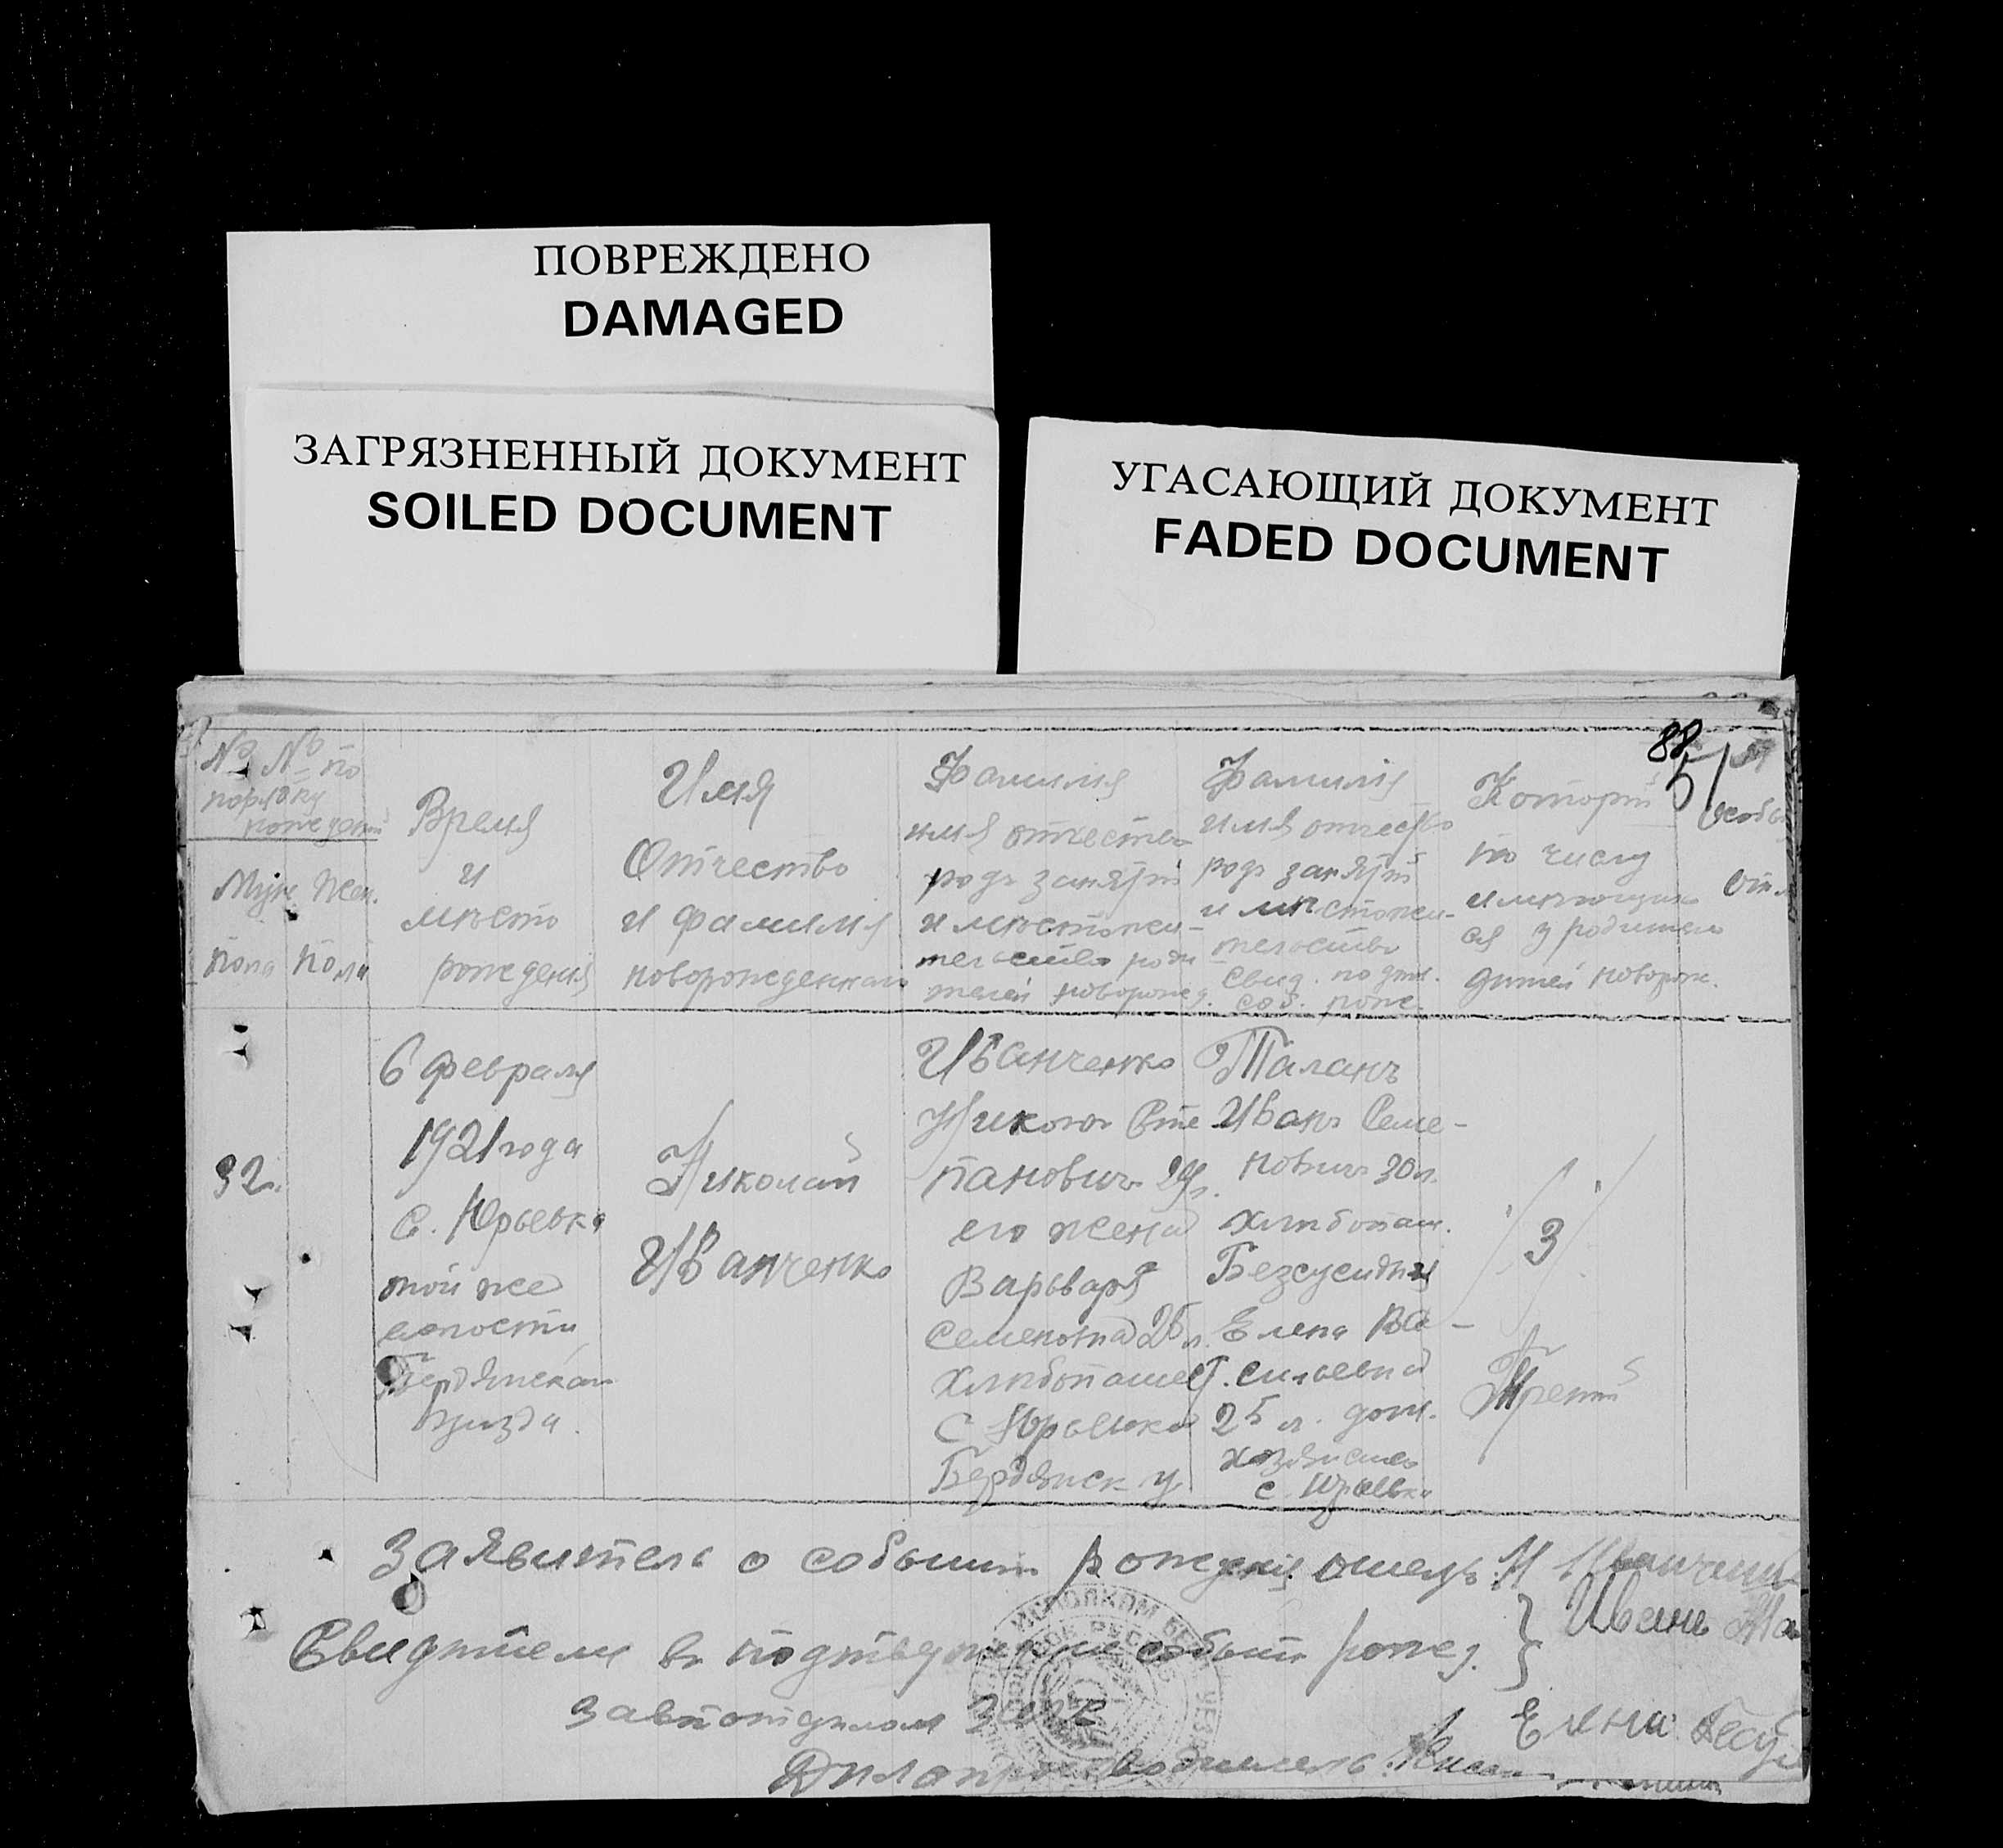 ПОВРЕЖДЕНО
DAMAGED
ЗАГРЯЗНЕННЫЙ ДОКУМЕНТ
SOILED DOCUMENT
УГАСАЮЩИЙ ДОКУМЕНТ
FADED DOCUMENT
88
№ № по
порядку
Муж. Жен.
пола пола
Время
и
мѣсто
рожденія
Имя
Отчество
и фамилія
новорожденнаго
Фамилия
имя отчество
родъ занятій
и мѣстожи-
тельство роди
телей новорожд.
Фамилія
имя отчество
родъ занятій
и мѣстожи-
тельство
свид. по дтв.
соб. рожд.
Который
по числу
имѣющих
ся у родителей
дѣтей новорож.
32.
6 февраля
1921 года
с. Юрьевка
той же
волости
Бердянскаго
уѣзда.
Николай
Иванченко
Иванченко
Николай Сте
пановичъ 29л.
его жена
Варвара
Семеновна 25 л.
хлѣбопашест.
с Юрьевка
Бердянск у
Таланъ
Иванъ Семе-
новичъ 30л.
хлѣбопаш.
Елена Ва-
сильевна
25 л. дом.
хозяйство
с. Юрьевка
3
Третій
Заявитель о событіи рожденія отецъ Н Иванченко
Свидѣтели въ подтвержденіи событія рожд. } Иванъ Та
Завподотдѣлом загс
Елена
Дѣлопроизводитель